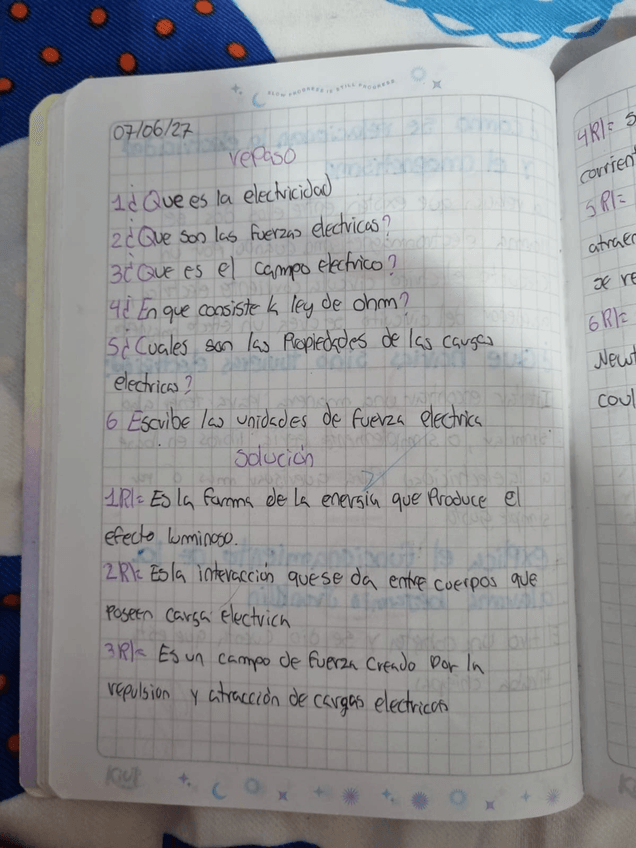 SLOW PROGRESS IS STILL PROGRESS
07/06/27
repaso
1¿ Que es la electricidad
2¿ Que son las fuerzas electricas?
3¿ Que es el campo electrico?
4¿ En que consiste la ley de ohm?
5¿ Cuales son las Propiedades de las cargas
electricas?
6 Escribe las unidades de fuerza electrica
Solución
1R/= Es la forma de la energia que Produce el
efecto luminoso.
2R/= Es la interacción que se da entre cuerpos que
Poseen carga electrica
3R/= Es un campo de fuerza creado Por la
repulsion y atracción de cargas electricas
Kiut
4R/= S
corrient
5R/=
atraer
se re
6R/=
Newt
coul